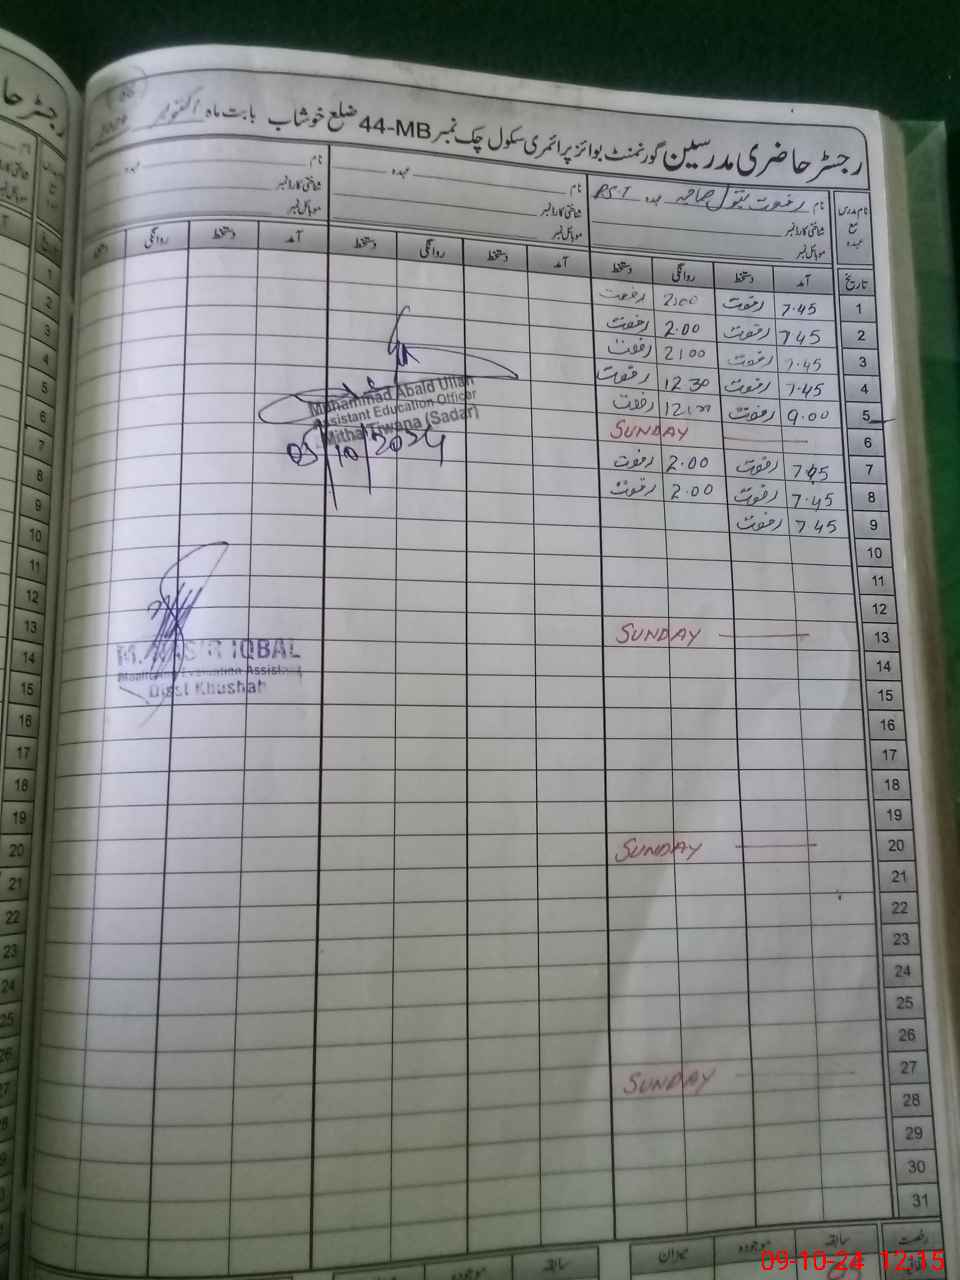 رجسٹر حاضری مدرسین گورنمنٹ بوائز پرائمری سکول چک نمبر 44-MB ضلع خوشاب بابت ماہ اکتوبر 2024
نام مدرس مع عہدہ
نام رفعت بتول صاحبہ عہدہ PST
شناختی کارڈ نمبر
موبائل نمبر
نام عہدہ
شناختی کارڈ نمبر
موبائل نمبر
نام عہدہ
شناختی کارڈ نمبر
موبائل نمبر
تاریخ آمد دستخط روانگی دستخط آمد دستخط روانگی دستخط آمد دستخط روانگی دستخط
1 7.45 رفعت 2.00 رفعت
2 7.45 رفعت 2.00 رفعت
3 7.45 رفعت 2.00 رفعت
4 7.45 رفعت 12.30 رفعت
5 9.00 رفعت رفعت
6 SUNDAY
7 7.45 رفعت 2.00 رفعت
8 7.45 رفعت 2.00 رفعت
9 7.45 رفعت
10
11
12
13 SUNDAY
14
15
16
17
18
19
20 SUNDAY
21
22
23
24
25
26
27 SUNDAY
28
29
30
31
Muhammad Abaid Ullah
Assistant Education Officer
Mitha Tiwana (Sadar)
05/10/2024
M. NASIR IQBAL
Monitoring Evaluation Assistant
Distt Khushab
رخصت سابقہ موجودہ میزان سابقہ موجودہ
09-10-24 12:15